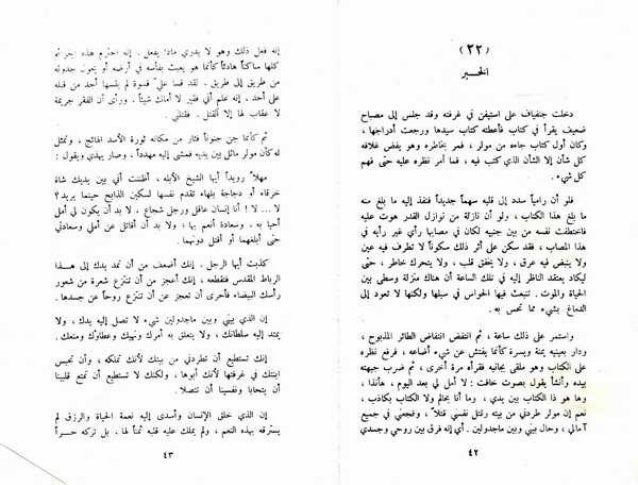 (٣٢)
الخبر
دخلت جنفياف على استيفن في غرفته وقد جلس إلى مصباح
ضعيف يقرأ في كتاب فأعطته كتاب سيدها ورجعت أدراجها ،
وكان أول كتاب جاءه من مولر ، فمر بخاطره وهو يفض غلافه
كل شأن إلا الشأن الذي كتب فيه ، فما أمر نظره عليه حتى فهم
كل شيء .
فلو أن رامياً سدد إلى قلبه سهماً جديداً فنفذ إليه ما بلغ منه
ما بلغ هذا الكتاب ، ولو أن نازلة من نوازل القدر هوت عليه
فاختطفت نفسه من بين جنبيه لكان في مصابها رأي غير رأيه في
هذا المصاب ، فقد سكن على أثر ذلك سكوناً لا تطرف فيه عين
ولا ينبض فيه عرق ، ولا يخفق قلب ، ولا يتحرك خاطر ، حتى
ليكاد يعتقد الناظر إليه في تلك الساعة أن هناك منزلة وسطى بين
الحياة والموت . تنبعث فيها الحواس في سبلها ولكنها لا تعود إلى
الدماغ بشيء مما تحس به .
واستمر على ذلك ساعة ، ثم انتفض انتفاض الطائر المذبوح ،
ودار بعينيه يمنة ويسرة كأنما يفتش عن شيء أضاعه ، فرفع نظره
على الكتاب وهو ملقى بجانبه فقرأه مرة أخرى ، ثم ضرب جبهته
بيده وأنشأ يقول بصوت خافت : لا أمل لي بعد اليوم ، هأنذا ،
وها هو ذا الكتاب بين يدي ، وما أنا بحالم ولا الكتاب بكاذب ،
نعم إن مولر طردني من بيته وقتل نفسي قتلاً ، وفجعني في جميع
آمالي ، وحال بيني وبين ماجدولين . أي إنه فرق بين روحي وجسدي
٤٢
إنه فعل ذلك وهو لا يدري ماذا يفعل . إنه اجترم هذه الجرائم
كلها ساكناً هادئاً كأنما هو يعبث بفأسه في أرضه أو يحول جدوله
من طريق إلى طريق . لقد قسا علي قسوة لم يقسها أحد من قبله
على أحد ، إنه علم أني فقير لا أملك شيئاً . ورأى أن الفقر جريمة
لا عقاب لها إلا القتل . فقتلني .
ثم كأنما جن جنوناً فثار من مكانه ثورة الأسد الهائج ، وتمثل
له كأن مولر ماثل بين يديه فمشى إليه مهدداً ، وصار يهذي ويقول :
مهلاً رويداً أيها الشيخ الأبله ، أظننت أني بين يديك شاة
خرقاء أو دجاجة بلهاء تقدم نفسها لسكين الذابح حينما يريد ؟
لا ... لا ! أنا إنسان عاقل ورجل شجاع . لا بد أن يكون لي أمل
أحيا به ، وسعادة أنعم بها ؛ ولا بد أن أقاتل عن أملي وسعادتي
حتى أبلغهما أو أقتل دونهما .
كذبت أيها الرجل . إنك أضعف من أن تمد يدك إلى هذا
الرباط المقدس فتقطعه ، إنك أعجز من أن تنتزع شعرة من شعور
رأسك البيضاء فأحرى أن تعجز عن أن تنتزع روحاً عن جسدها .
إن الذي بيني وبين ماجدولين شيء لا تصل إليه يدك ، ولا
يمتد إليه سلطانك ، ولا يتعلق به أمرك ونهيك ، وعطاؤك ومنعك .
إنك تستطيع أن تطردني من بيتك لأنك تملكه ، وأن تحبس
ابنتك في غرفتها لأنك أبوها ، ولكنك لا تستطيع أن تمنع قلبينا
أن يتحابا ونفسينا أن تتصلا .
إن الذي خلق الإنسان وأسدى إليه نعمة الحياة والرزق لم
يسترقه بهذه النعم ، ولم يملك عليه قلبه ثمناً لها . بل تركه حراً
٤٣